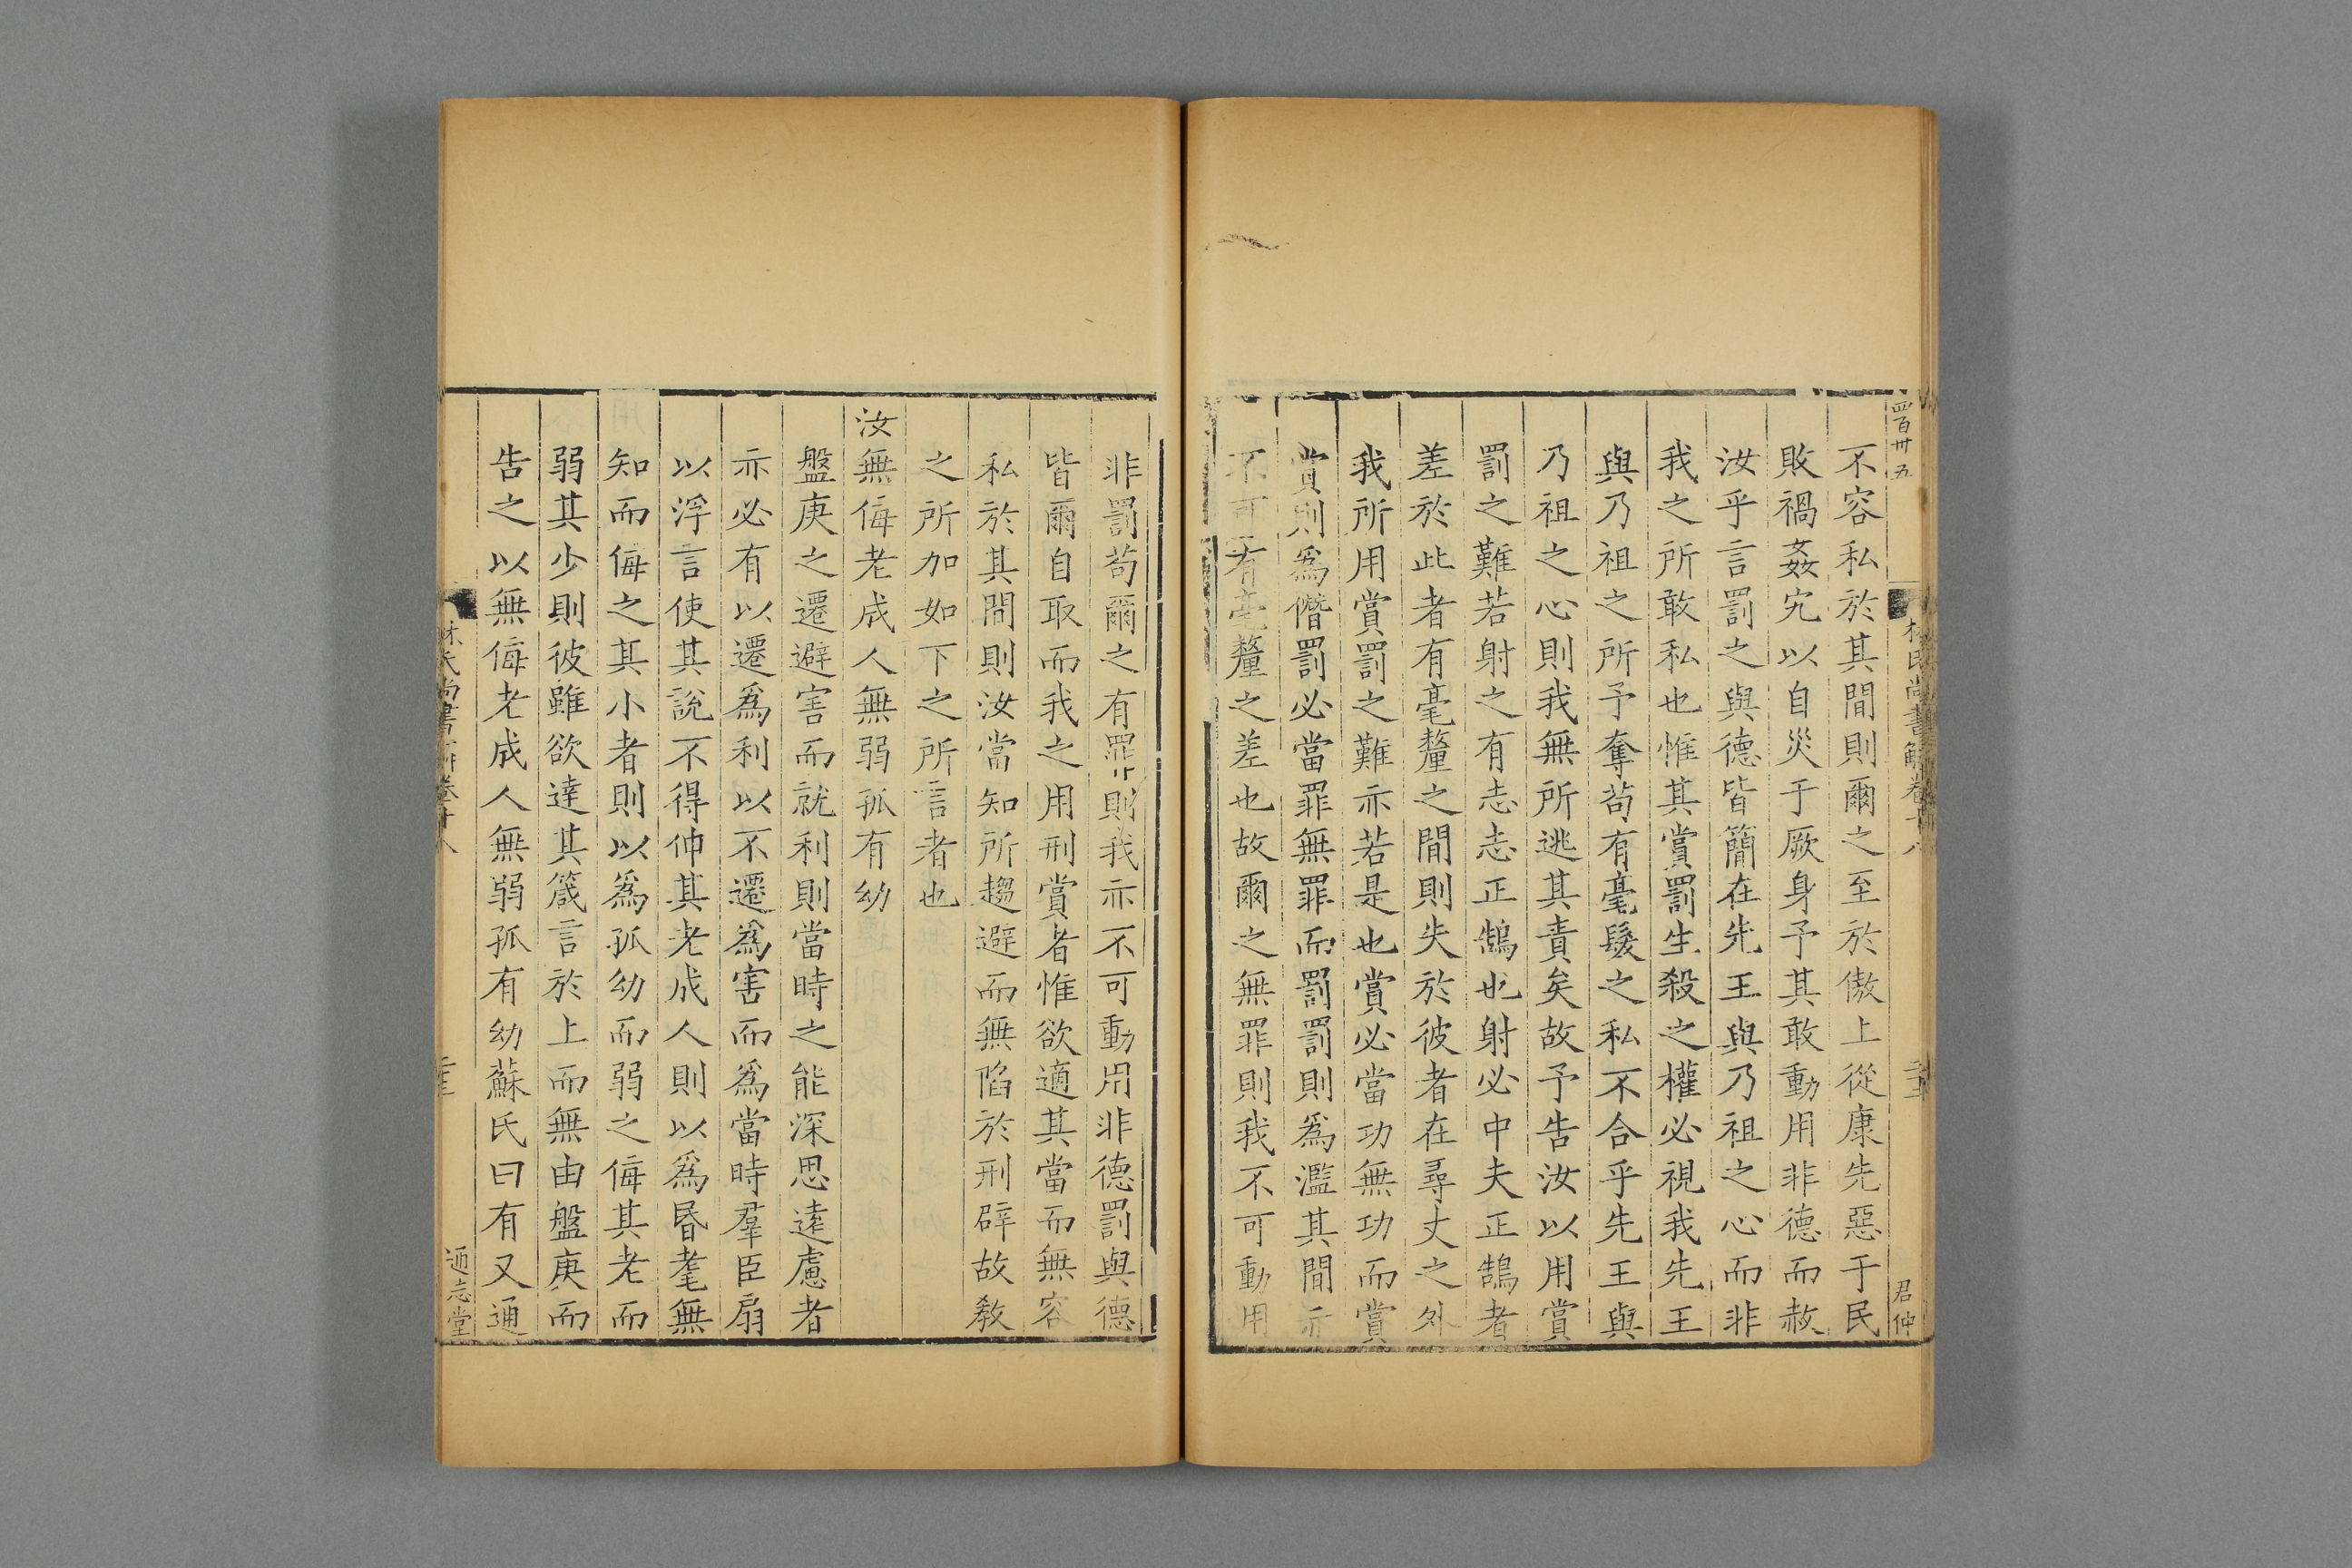 四百卅五
不容私於其間則爾之至於傲上從康先惡于民
敗禍姦宄以自災于厥身予其敢動用非德而赦
汝乎言罰之與德皆簡在先王與乃祖之心而非
我之所敢私也惟其賞罰生殺之權必視我先王
與乃祖之所予奪茍有毫髮之私不合乎先王與
乃祖之心則我無所逃其責矣故予告汝以用賞
罰之難若射之有志志正鵠也射必中夫正鵠者
差於此者有毫釐之間則失於彼者在尋丈之外
我所用賞罰之難亦若是也賞必當功無功而賞
賞則為僭罰必當罪無罪而罰罰則為濫其間亦
不可有毫釐之差也故爾之無罪則我不可動用
君仲
非罰茍爾之有罪則我亦不可動用非德罰與德
皆爾自取而我之用刑賞者惟欲適其當而無容
私於其間則汝當知所趨避而無陷於刑辟故敎
之所加如下之所言者也
汝無侮老成人無弱孤有幼
盤庚之遷避害而就利則當時之能深思遠慮者
亦必有以遷為利以不遷為害而為當時羣臣扇
以浮言使其說不得伸其老成人則以為昬耄無
知而侮之其小者則以為孤幼而弱之侮其老而
弱其少則彼雖欲達其箴言於上而無由盤庚而
告之以無侮老成人無弱孤有幼蘇氏曰有又通
林氏尚書解卷十八
通志堂